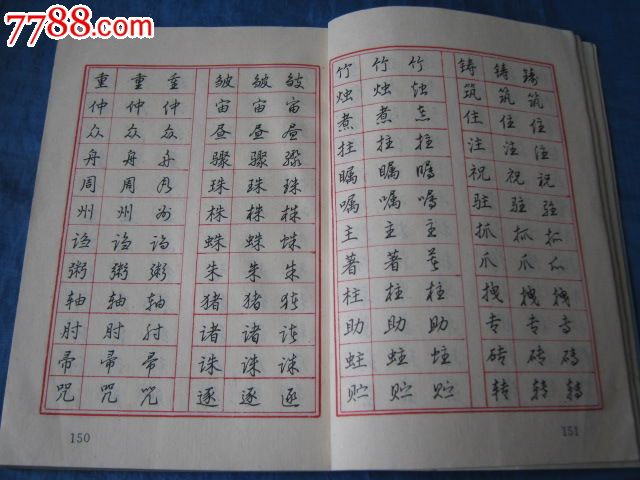 7788.com
重 重 重 皱 皱 皱
仲 仲 仲 宙 宙 宙
众 众 众 昼 昼 昼
舟 舟 舟 骤 骤 骤
周 周 周 珠 珠 珠
州 州 州 株 株 株
诌 诌 诌 蛛 蛛 蛛
粥 粥 粥 朱 朱 朱
轴 轴 轴 猪 猪 猪
肘 肘 肘 诸 诸 诸
帚 帚 帚 诛 诛 诛
咒 咒 咒 逐 逐 逐
150
竹 竹 竹 铸 铸 铸
烛 烛 烛 筑 筑 筑
煮 煮 煮 住 住 住
拄 拄 拄 注 注 注
瞩 瞩 瞩 祝 祝 祝
嘱 嘱 嘱 驻 驻 驻
主 主 主 抓 抓 抓
著 著 著 爪 爪 爪
柱 柱 柱 拽 拽 拽
助 助 助 专 专 专
蛀 蛀 蛀 砖 砖 砖
贮 贮 贮 转 转 转
151